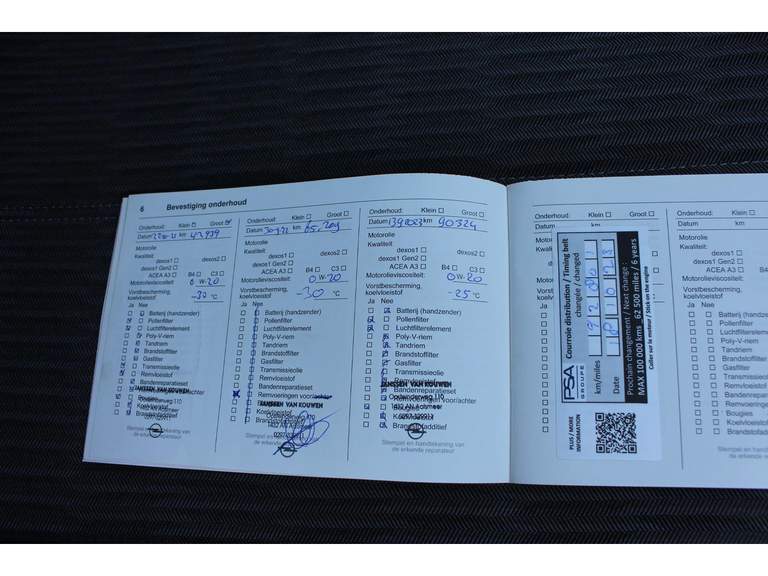 6 Bevestiging onderhoud
Onderhoud: Klein Groot
Datum km 43939
Motorolie
Kwaliteit:
dexos1 dexos2
dexos1 Gen2
ACEA A3 B4 C3
Motorolieviscositeit: 0 W-20
Vorstbescherming,
koelvloeistof -37 °C
Ja Nee
Batterij (handzender)
Pollenfilter
Luchtfilterelement
Poly-V-riem
Tandriem
Brandstoffilter
Gasfilter
Transmissieolie
Remvloeistof
Bandenreparatieset
JANSSEN VAN KOUWEN
Brandstofadditief
Stempel en handtekening van
de erkende reparateur
Onderhoud: Klein Groot
Datum km 65.209
Motorolie
Kwaliteit:
dexos1 dexos2
dexos1 Gen2
ACEA A3 B4 C3
Motorolieviscositeit: 0W-20
Vorstbescherming,
koelvloeistof -30 °C
Ja Nee
Batterij (handzender)
Pollenfilter
Luchtfilterelement
Poly-V-riem
Tandriem
Brandstoffilter
Gasfilter
Transmissieolie
Remvloeistof
Bandenreparatieset
Remvoeringen voor/achter
JANSSEN VAN KOUWEN
Koelvloeistof
Brandstofadditief
Stempel en handtekening van
de erkende reparateur
Onderhoud: Klein Groot
Datum 1392023 km 90324
Motorolie
Kwaliteit:
dexos1 dexos2
dexos1 Gen2
ACEA A3 B4 C3
Motorolieviscositeit: 0W-20
Vorstbescherming,
koelvloeistof -25 °C
Ja Nee
Batterij (handzender)
Pollenfilter
Luchtfilterelement
Poly-V-riem
Tandriem
Brandstoffilter
Gasfilter
Transmissieolie
Remvloeistof
JANSSEN VAN KOUWEN
Bandenreparatieset
Oosteinderweg 110
1432 AN Aalsmeer
Bougies
Koelvloeistof
Brandstofadditief
Stempel en handtekening van
de erkende reparateur
Onderhoud: Klein Groot
Datum km
Vorst
koelv
Ja Nee
PSA
GROUPE
Courroie distribution / Timing belt
changée / changed
km/miles
Date 18 10 23
Prochain changement / Next change :
MAX 100 000 kms 62 500 miles / 6 years
Coller sur le moteur / Stick on the engine
PLUS / MORE
INFORMATION
Onderhoud:
Datum
Motorolie
Kwaliteit:
Motorolieviscositeit
Vorstbescherming,
koelvloeistof
Ja Nee
Batterij (handze
Pollenfilter
Luchtfilterelemen
Poly-V-riem
Tandriem
Brandstoffilter
Gasfilter
Transmissieolie
Remvloeistof
Bandenreparatie
Remvoeringen
Bougies
Koelvloeistof
Brandstofaddi
Stempel en hand
de erk